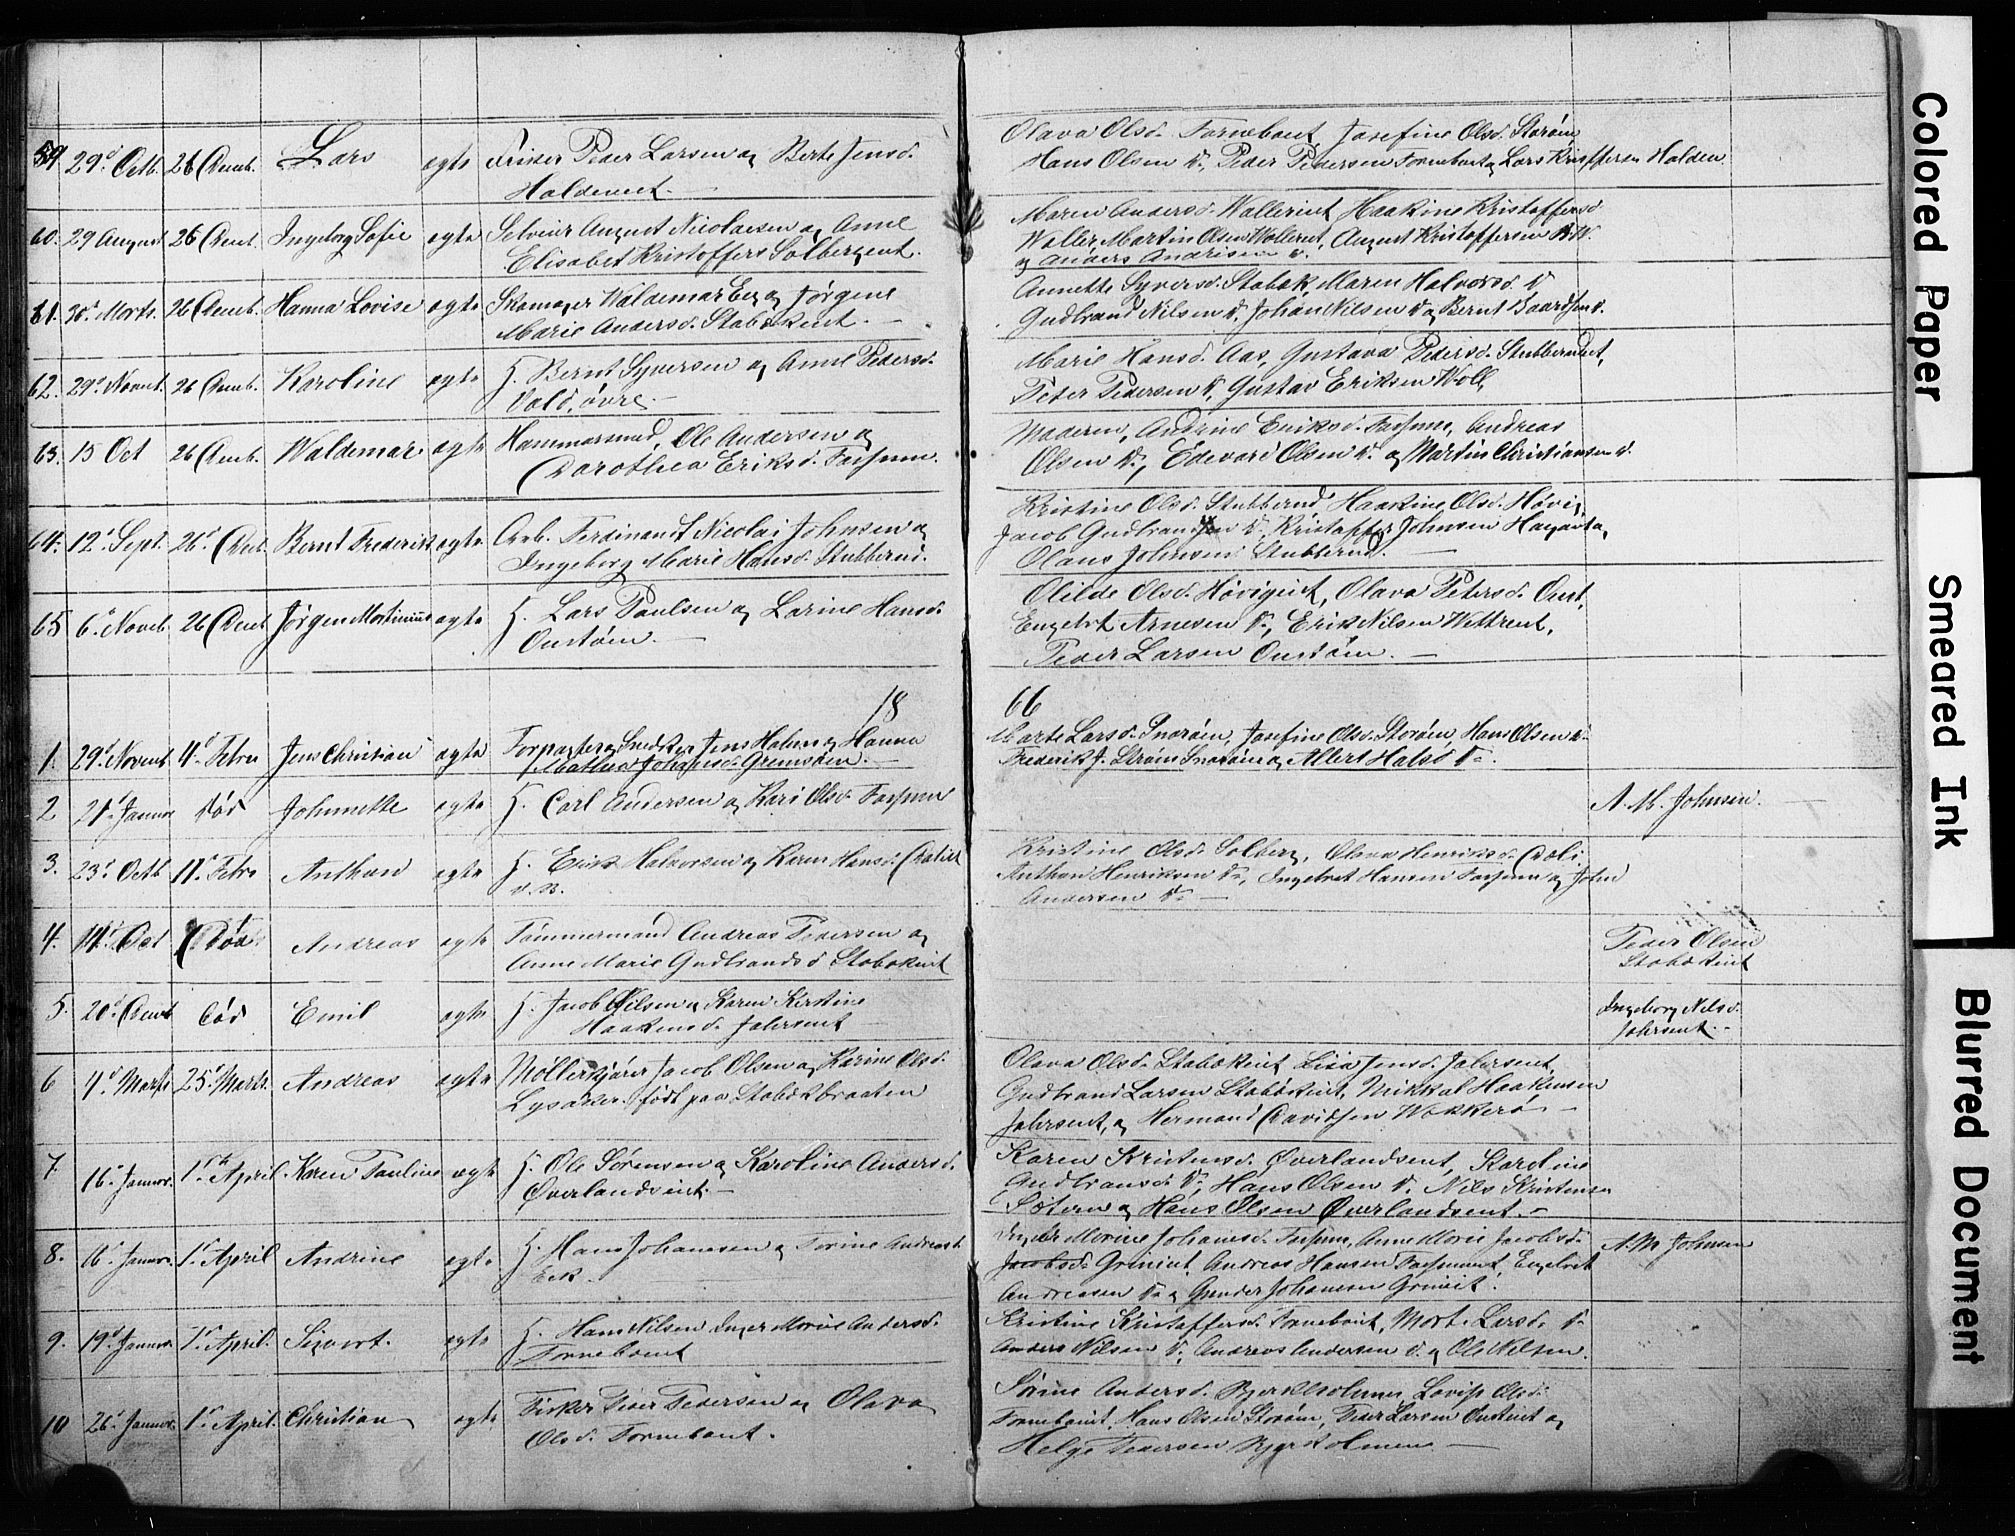 59. 29d Octb. 26 Decmb. Lars ægte Fisker Peder Larsen og Berte Jensd.
Haldeneet.
Olava Olsd. Forneboeiet, Josefine Olsd. Storøen
Hans Olsen do, Peder Pedersen Fornebøeiet og Lars Kristoffersen Halden
60. 29 August 26 Decmb. Ingeborg Sofie ægte Selveier August Nicolaisen og Anne
Elisabet Kristoffersd. Solbergeiet.
Maren Andersd. Wolleneiet Haakine Kristoffersd.
Wollen, Martin Olsen Wolleneiet, August Kristoffersen
og Anders Andersen do.
61. 30d Marts. 26 Decmb. Hanna Lovise ægte Skomager Waldemar Eng og Jørgine
Marie Andersd. Stabækeiet.
Annette Syversd. Stabæk Maren Halvorsd. do
Gudbrand Nilsen do, Johan Nilsen do og Bernt Baardsen do.
62. 29d Novmb. 26 Decmb. Karoline ægte H. Bernt Syversen og Anne Pedersd.
Vold, øvre.
Marie Hansd. Aas, Gustava Pedersd. Stubberudeiet,
Peter Pedersen do, Gustav Eriksen Woll,
63. 15 Oct 26 Decmb. Waldemar ægte Hammersmed, Ole Andersen og
Dorothea Eriksd. Fossum.
Moderen, Andrine Eriksd. Fossum, Andreas
Olsen do, Edevard Olsen do og Martin Christiansen do.
64. 12d Sept. 26d Decmb. Bernt Frederik ægte Arb. Ferdinant Nicolai Johnsen og
Ingeborg Marie Hansd. Stubberud.
Kristine Olsd. Stubberud, Haakine Olsd. Høvig,
Jacob Gudbrandsen do, Kristoffer Johnsen
Olaus Johnsen Stubberud.
65 6d Novmb. 26 Decmb. Jørgen Martinius ægte H. Lars Paulsen og Larine Hansd.
Oustøen.
Olilde Olsd. Høvigeiet, Olava Petersd. Oust,
Engebret Arnesen do, Erik Nilsen Wettreeiet,
Peder Larsen Oustøen.
18 66
1. 29d Novmb 4d Febru Jens Christian ægte Forpagter og Smed Jens Holm og Hanna
Mathea Johansd. Grimsøen.
Marte Larsd. Snarøen, Josefine Olsd. Storøen, Hans Olsen do
Frederik J. Strøm Snarøen og Albert Halsø do
2 21d Januar død Johannette ægte H. Carl Andersen og Kari Olsd. Fossum
A. M. Johnsen.
3. 23d Octb 11d Febr Anthon ægte H. Erik Halvorsen og Karen Hansd. Dælieiet
v. B.
Kristine Olsd. Solberg, Olava Henriksd. Dæli,
Anthon Henriksen do, Ingebret Hansen Fossum og John
Andersen do
4. 14d Oct Død Andreas ægte Tømmermand Andreas Pedersen og
Anne Marie Gudbrandsd Stabækeiet
Peder Olsen
Stabækeiet
5. 20d Decmb Død Emil ægte H. Jacob Nilsen og Karen Kirstine
Haakensd. Jahrseiet
Ingeborg Nilsd.
Jahrseiet.
6 4d Marts 25d Marts. Andreas ægte Møllerkjører Jacob Olsen og Karine Olsd.
Lysaker. født paa Stabækbraaten
Olava Olsd. Stabækeiet Lisa Jensd. Jahrseiet,
Gudbrand Larsen Stabækeiet, Mikkal Haakensen
Jahrseiet, og Hermand Davidsen Wækkerø
7 16d Januar. 1ste April. Karen Pauline ægte H. Ole Sørensen og Karoline Andersd.
Øverlandseiet.
Karen Kristensd. Øverlandseiet, Karoline
Gudbransd. do, Hans Olsen do. Nils Kristensen
Sætern og Hans Olsen Øverlandseiet.
8. 16d Januar. 1d April Andrine ægte H. Hans Johansen og Torine Andreasd.
Eek.
Inger Marine Johansd. Fossum, Anne Marie Jacobsd.
Jacobsd. Grinieiet Andreas Hansen Fossumeiet, Engebret
Andreasen do og Gunder Johansen Grinieiet.
A. M. Johnsen
9. 19d Januar. 1d April. Sigvart. ægte H. Hans Nilsen Inger Marie Andersd.
Forneboeiet
Kristine Kristoffersd. Forneboeiet, Marte Larsd. do
Anders Nilsen do, Andreas Andersen do. og Ole Nilsen.
10 26d Januar. 1d April. Christian ægte Fisker Peder Pedersen og Olava
Olsd. Forneboeiet.
Sørine Andersd. Bjerkholmen, Lovise Olsd.
Forneboeiet, Hans Olsen Storøen, Peder Larsen Ousteiet og
Helge Pedersen Bjerkholmen
Colored Paper
Smeared Ink
Blurred Document